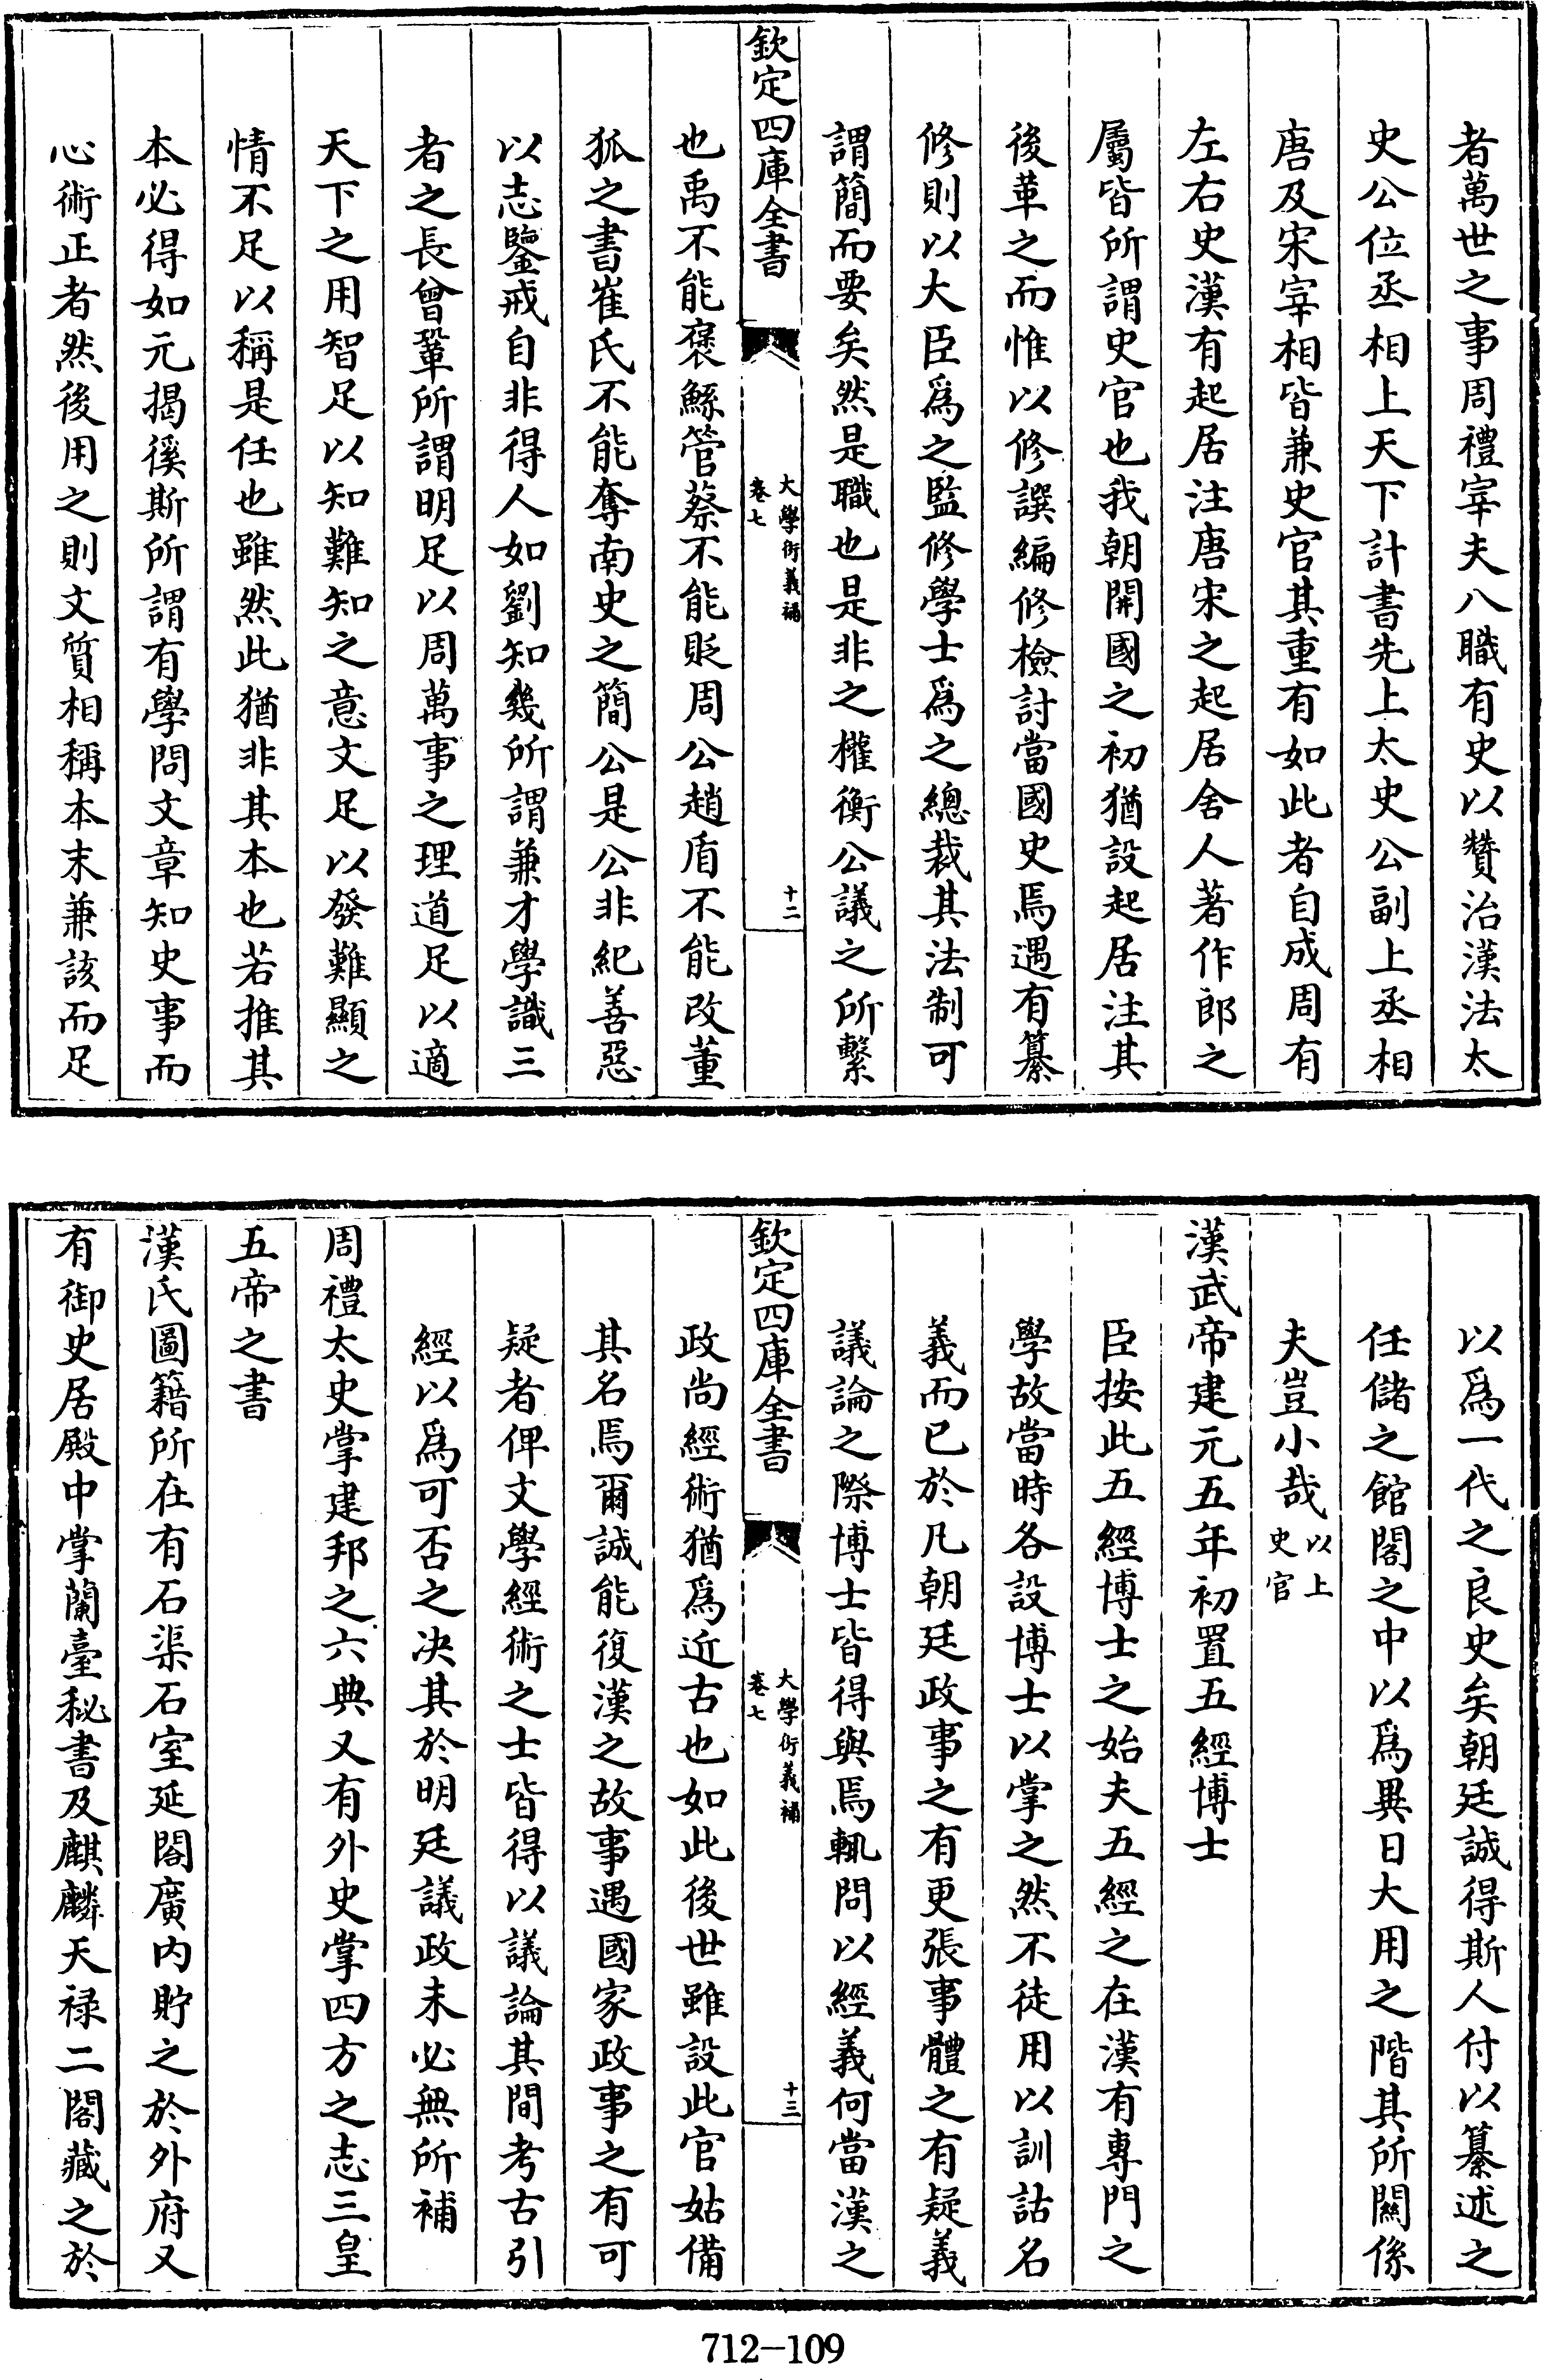 者萬世之事周禮宰夫八職有史以贊治漢法太
史公位丞相上天下計書先上太史公副上丞相
唐及宋宰相皆兼史官其重有如此者自成周有
左右史漢有起居注唐宋之起居舍人著作郎之
屬皆所謂史官也我朝開國之初猶設起居注其
後革之而惟以修譔編修檢討當國史焉遇有纂
修則以大臣爲之監修學士爲之總裁其法制可
謂簡而要矣然是職也是非之權衡公議之所繫
欽定四庫全書
大學衍義補
卷七
十二
也禹不能褒鯀管蔡不能貶周公趙盾不能改董
狐之書崔氏不能奪南史之簡公是公非紀善惡
以志鑒戒自非得人如劉知幾所謂兼才學識三
者之長曾鞏所謂明足以周萬事之理道足以適
天下之用智足以知難知之意文足以發難顯之
情不足以稱是任也雖然此猶非其本也若推其
本必得如元揭徯斯所謂有學問文章知史事而
心術正者然後用之則文質相稱本末兼該而足
以爲一代之良史矣朝廷誠得斯人付以纂述之
任儲之館閣之中以爲異日大用之階其所關係
夫豈小哉以上
史官
漢武帝建元五年初置五經博士
臣按此五經博士之始夫五經之在漢有專門之
學故當時各設博士以掌之然不徒用以訓詁名
義而已於凡朝廷政事之有更張事體之有疑義
議論之際博士皆得與焉輒問以經義何當漢之
欽定四庫全書
大學衍義補
卷七
十三
政尚經術猶爲近古也如此後世雖設此官姑備
其名焉爾誠能復漢之故事遇國家政事之有可
疑者俾文學經術之士皆得以議論其間考古引
經以爲可否之决其於明廷議政未必無所補
周禮太史掌建邦之六典又有外史掌四方之志三皇
五帝之書
漢氏圖籍所在有石渠石室延閣廣内貯之於外府又
有御史居殿中掌蘭臺秘書及麒麟天禄二閣藏之於
712-109